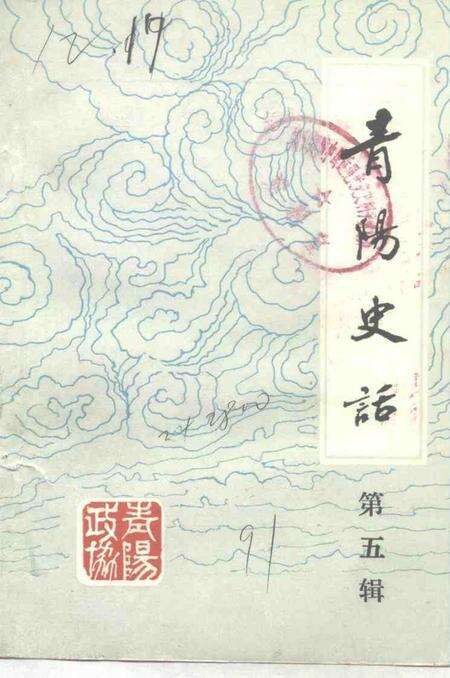 青陽史話
第五辑
青陽政协
12.19
91